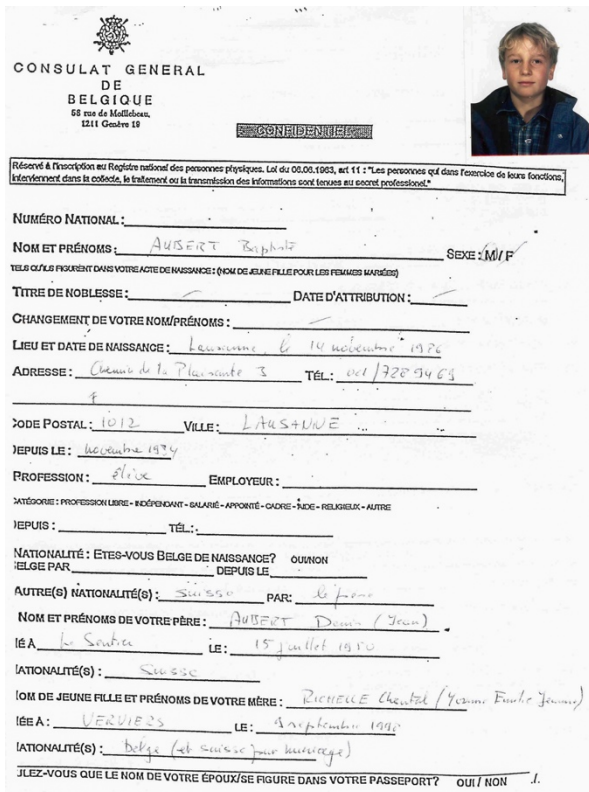 CONSULAT GENERAL
DE
BELGIQUE
58 rue de Moillebeau,
1211 Genève 19
CONFIDENTIEL
Réservé à l'inscription au Registre national des personnes physiques. Loi du 08.08.1983, art 11 : "Les personnes qui dans l'exercice de leurs fonctions,
interviennent dans la collecte, le traitement ou la transmission des informations sont tenues au secret professionel."
NUMÉRO NATIONAL :
NOM ET PRÉNOMS : AUBERT Baptiste SEXE : M / F
TELS QU'ILS FIGURENT DANS VOTRE ACTE DE NAISSANCE : (NOM DE JEUNE FILLE POUR LES FEMMES MARIÉES)
TITRE DE NOBLESSE : — DATE D'ATTRIBUTION : —
CHANGEMENT DE VOTRE NOM/PRÉNOMS : —
LIEU ET DATE DE NAISSANCE : Lausanne, le 14 novembre 1986
ADRESSE : Chemin de la Plaisante 3 TÉL : 021/728 9469
CODE POSTAL : 1012 VILLE : LAUSANNE
DEPUIS LE : novembre 1994
PROFESSION : élève EMPLOYEUR :
CATÉGORIE : PROFESSION LIBRE - INDÉPENDANT - SALARIÉ - APPOINTÉ - CADRE - AIDE - RELIGIEUX - AUTRE
DEPUIS : TÉL :
NATIONALITÉ : ETES-VOUS BELGE DE NAISSANCE? OUI/NON
ELGE PAR DEPUIS LE
AUTRE(S) NATIONALITÉ(S) : suisse PAR: le père
NOM ET PRÉNOMS DE VOTRE PÈRE : AUBERT Denis (Jean)
IÉ À Le Sentier LE : 15 juillet 1950
IATIONALITÉ(S) : Suisse
IOM DE JEUNE FILLE ET PRÉNOMS DE VOTRE MÈRE : RICHELLE Chantal (Yvonne Emilie Jeanne)
IÉE À : VERVIERS LE : septembre
IATIONALITÉ(S) : belge (et suisse par mariage)
ULEZ-VOUS QUE LE NOM DE VOTRE ÉPOUX/SE FIGURE DANS VOTRE PASSEPORT? OUI / NON ./.